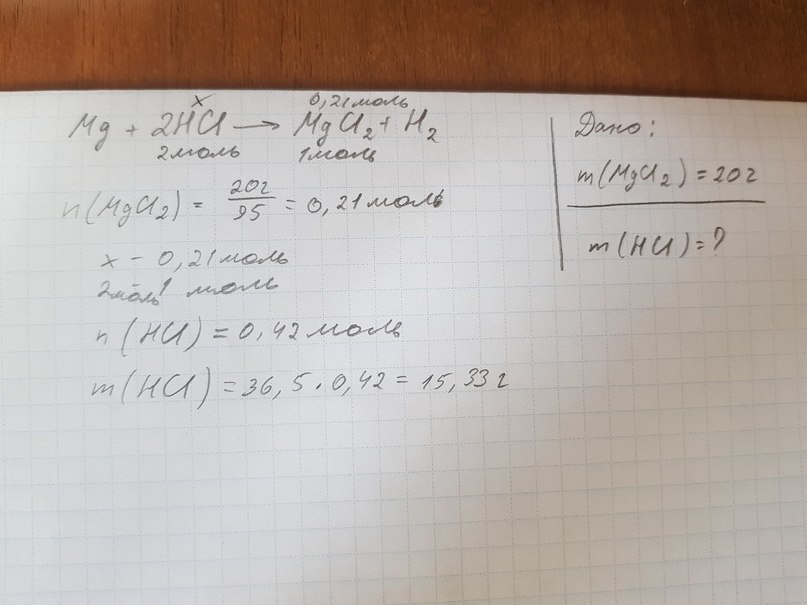 x 0,21моль
Mg + 2HCl → MgCl₂ + H₂
2моль 1моль
n(MgCl₂) = 20г/95 = 0,21моль
x – 0,21моль
2моль – 1 моль
n(HCl) = 0,42моль
m(HCl) = 36,5 · 0,42 = 15,33г
Дано:
m(MgCl₂) = 20г
m(HCl) = ?